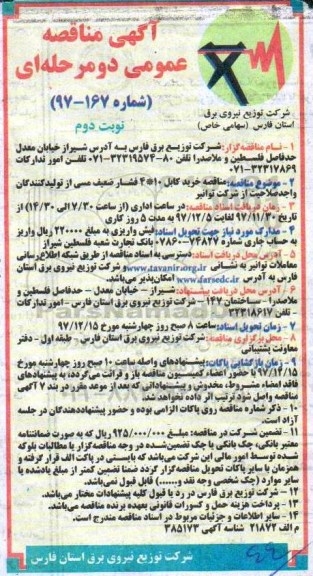 آگهی مناقصه
عمومی دومرحله‌ای
(شماره ۱۶۷-۹۷)
نوبت دوم
شرکت توزیع نیروی برق
استان فارس (سهامی خاص)
۱ - نام مناقصه‌گزار: شرکت توزیع برق فارس به آدرس شیراز خیابان معدل
حدفاصل فلسطین و ملاصدرا تلفن ۸۰-۳۲۳۱۹۵۷۴-۰۷۱ تلفن امور تدارکات
۳۲۳۱۷۸۶۹-۰۷۱
۲ - موضوع مناقصه: مناقصه خرید کابل ۱۰*۴ فشار ضعیف مسی از تولیدکنندگان
واجد صلاحیت از شرکت توانیر
۳ - زمان دریافت اسناد مناقصه: در ساعت اداری (از ساعت ۷/۳۰ الی ۱۴/۳۰) از
تاریخ ۹۷/۱۱/۳۰ لغایت ۹۷/۱۲/۵ به مدت ۵ روز کاری
۴ - مدارک مورد نیاز جهت تحویل اسناد: فیش واریزی به مبلغ ۲۲۰۰۰۰ ریال واریز
به حساب جاری شماره ۰۷۸۶۰۰۷۴۸۲۷ بانک تجارت شعبه فلسطین شیراز
۵ - آدرس محل دریافت اسناد: دسترسی به اسناد مناقصه از طریق شبکه اطلاع‌رسانی
معاملات توانیر به نشانی www.tavanir.org.ir و شرکت توزیع نیروی برق استان
فارس به آدرس www.farsedc.ir امکان‌پذیر می‌باشد.
۶ - آدرس محل دریافت پیشنهاد: شیراز - خیابان معدل - حدفاصل فلسطین و
ملاصدرا - ساختمان ۱۴۷ - شرکت توزیع نیروی برق استان فارس - امور تدارکات
- تلفن ۳۲۳۱۸۶۱۷
۷ - زمان تحویل اسناد: ساعت ۸ صبح روز چهارشنبه مورخ ۹۷/۱۲/۱۵
۸ - محل برگزاری مناقصه: شرکت توزیع نیروی برق استان فارس - طبقه اول - دفتر
معاونت پشتیبانی
۹ - زمان بازگشایی پاکات: پیشنهادهای واصله ساعت ۱۰ صبح روز چهارشنبه مورخ
۹۷/۱۲/۱۵ با حضور اعضاء کمیسیون مناقصه باز و قرائت می‌گردد به پیشنهادهای
فاقد امضاء مشروط، مخدوش و پیشنهاداتی که بعد از موعد مقرر در بند ۷ آگهی
مناقصه واصل شود ترتیب اثر داده نخواهد شد.
۱۰ - ذکر شماره مناقصه روی پاکات الزامی بوده و حضور پیشنهاددهندگان در جلسه
آزاد است.
۱۱ - تضمین شرکت در مناقصه: مبلغ ۹۲۵/۰۰۰/۰۰۰ ریال که به صورت ضمانتنامه
معتبر بانکی، چک بانکی یا چک تضمین‌شده در وجه مناقصه‌گزار یا مطالبات بلوکه
شده توسط امور مالی این شرکت می‌باشد که بایستی در پاکت الف قرار گرفته و
همزمان با سایر پاکات تحویل مناقصه‌گزار گردد ضمنا تضمین کمتر از مبلغ یادشده یا
سایر موارد (چک شخصی وجه نقد و......) قابل قبول نمی‌باشد.
۱۲ - شرکت توزیع برق فارس در رد یا قبول کلیه پیشنهادات مختار می‌باشد.
۱۳ - پرداخت هزینه حمل و کسورات قانونی بعهده برنده مناقصه می‌باشد.
۱۴ - سایر اطلاعات و جزئیات مربوط در اسناد مناقصه مندرج است.
م الف ۲۱۸۷۲ شناسه آگهی ۳۸۵۱۷۳
شرکت توزیع نیروی برق استان فارس